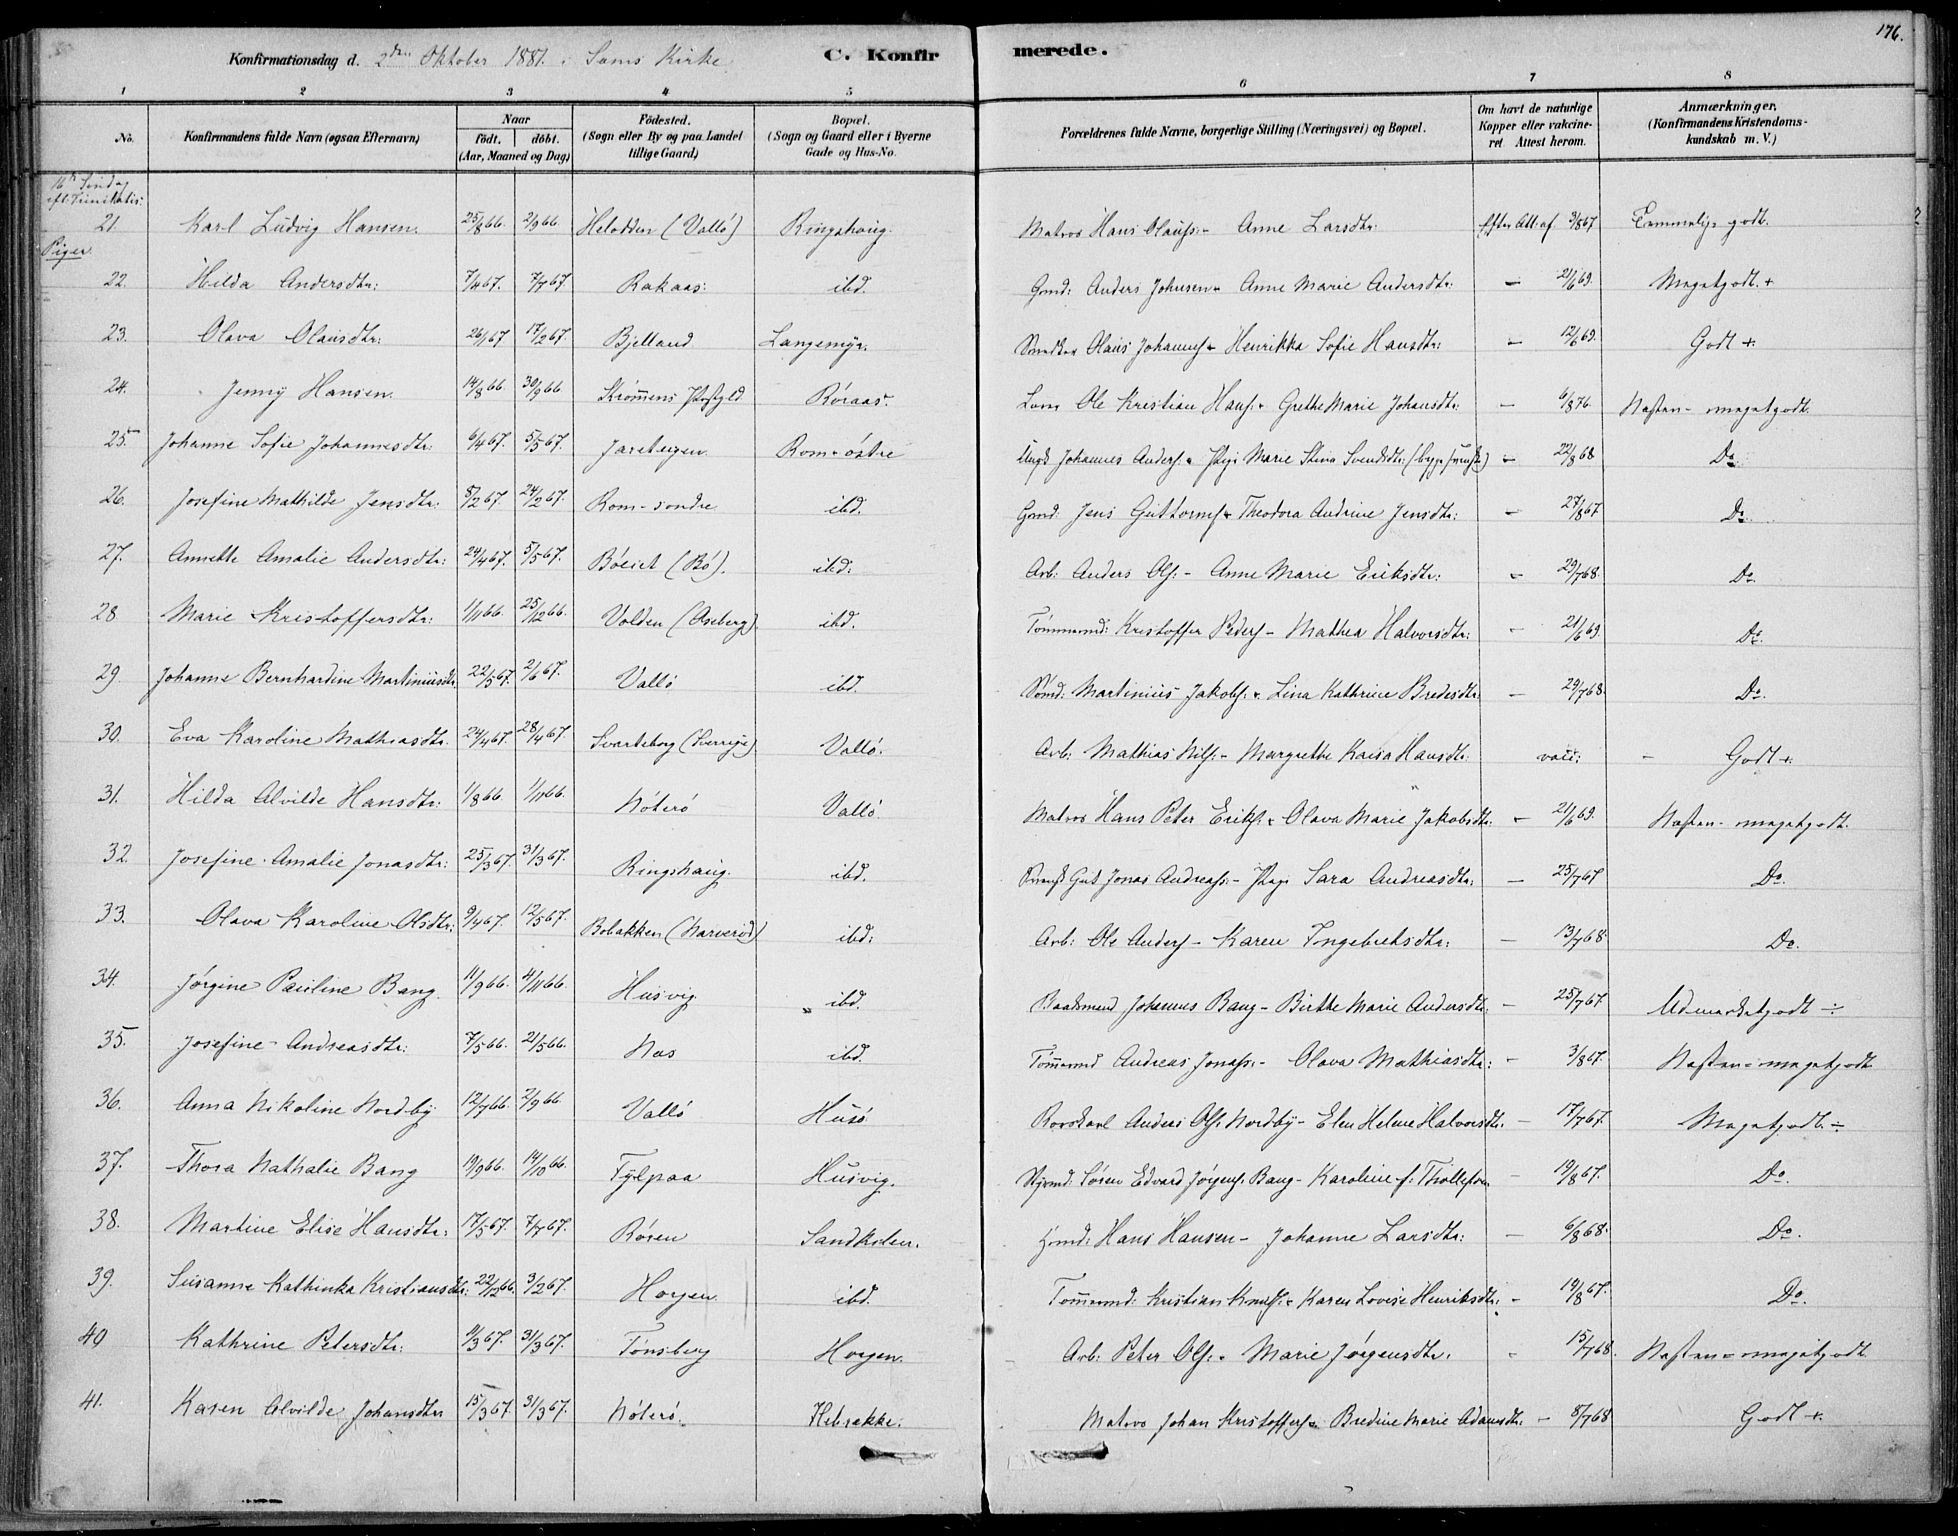 176.
Konfirmationsdag d. 2den Oktober 1881. i Sems Kirke
C. Konfirmerede.
1 2 3 4 5 6 7 8
No. Konfirmandens fulde Navn (ogsaa Efternavn) Naar født. døbt. (Aar, Maaned og Dag) Fødested. (Sogn eller By og paa Landet tillige Gaard) Bopæl. (Sogn og Gaard eller i Byerne Gade og Hus-No. Forældrenes fulde Navne, borgerlige Stilling (Næringsvei) og Bopæl. Om havt de naturlige Kopper eller vakcineret Attest herom. Anmærkninger. (Konfirmandens Kristendomskundskab m. V.)
16de Søndag
eft. Trinitatis:
21. Karl Ludvig Hansen. 25/8 66. 2/9 66. (Vallö) Ringshaug. Matros Hans Olaufs: - Anne Larsdtr: efter Att. af 3/8 67 Temmelig godt.
Piger.
22. Hilda Andersdtr: 7/4 67. 7/7 67. Rakaas: ibd. Gmd: Anders Johnsen - Anne Marie Andersdtr: — 21/6 69. Megetgodt. +
23. Olava Olausdtr: 26/1 67 17/2 67. Bjelland Langemyr. Olaus Johannes - Henrikka Sofie Hansdtr: — 12/6 69. Godt +.
24. Jenny Hansen. 14/8 66. 30/9 66 Strömmens Røraas. Lods Ole Kristian Hans. - Grethe Marie Johansdtr: — 6/8 76. Næsten - megetgodt.
25. Johanne Sofie Johannesdtr: 6/4 67. 5/5 67. Jareteigen Rom-östre Ungk Johannes Anders. - Pige Marie Stina Svendsdtr: — 22/8 68 Do.
26. Josefine Mathilde Jensdtr: 5/2 67. 24/2 67. Rom-söndre ibd. Gmd: Jens Guttorms - Theodora Andrine Jensdtr: — 27/8 67 Do.
27. Annette Amalie Andersdtr: 24/4 67. 5/5 67. Böeiet (Bö). ibd: Arb: Anders Ols. - Anne Marie Eriksdtr: — 29/7 68. Do.
28 Marie Kristoffersdtr: 1/11 66. 25/12 66. Volden (Oseberg). ibd. Tömmermd: Kristoffer Peders - Mathea Halvorsdtr: — 21/6 69. Do.
29 Johanne Bernhardine Martiniusdtr 22/5 67. 2/6 67. Vallö ibd. Sömd: Martinius Jakobs. - Lina Kathrine Bredesdtr: — 29/7 68. Do.
30. Eva Karoline Mathiasdtr. 24/4 67. 28/4 67. Svarteborg (Sverrige) Vallö. Arb: Mathias Nils. - Margrethe Kaisa Hansdtr: vacc: - Godt +.
31. Hilda Alvilde Hansdtr: 1/8 66. 1/11 66. Nöterö Vallö. Matros Hans Peter Eriks. - Olava Marie Jakobsdtr: — 21/6 69. Næsten - megetgodt.
32. Josefine Amalie Jonasdtr: 25/3 67. 31/3 67. Ringshaug. ibd. Gut Jonas Andreass: - Pige Sara Andreasdtr: — 25/7 67 Do.
33. Olava Karoline Olsdtr: 9/4 67. 12/5 67. Bobakken (Narveröd) ibd: Arb: Ole Anders - Karen Ingebretsdtr: — 13/7 68. Do.
34. Jørgine Pauline Bang. 11/9 66. 4/11 66. Husvig ibd. Baadsmand Johannes Bang - Birthe Marie Andersdtr: — 25/7 67. Udmærketgodt ÷
35. Josefine - Andreasdtr: 7/5 66. 21/5 66. Næs ibd. Tömmermd Andreas Jonass. - Olava Mathiasdtr: — 3/8 67. Næsten - megetgodt
36. Anna Nikoline Nordby 12/7 66. 2/9 66. Vallö Husö. Anders Ols. Nordby - Elen Helene Halvorsdtr. — 17/7 67. Megetgodt. ÷
37. Thora Nathalie Bang 19/9 66. 14/10 66. Fylpaa Husvig. Søren Edvard Jørgens. Bang - Karoline f. Thollefsen — 19/8 67. Do.
38. Martine Elise Hansdtr: 17/5 67. 7/7 67. Røren Sandkilen. Gmd: Hans Hansen - Johanne Larsdtr: — 6/8 68. Do.
39. Susanne Kathinka Kristiansdtr: 22/12 66. 3/2 67. Horgen ibd. Tömmermd: Kristian Knuts. - Karen Lovise Henriksdtr: — 19/8 67. Do.
40 Kathrine Petersdtr: 9/3 67. 31/3 67. Tönsberg Horgen. Arb: Peter Ols. - Marie Jørgensdtr. — 15/7 68. Næsten - megetgodt.
41. Karen Alvilde Johansdtr 15/3 67. 31/3 67. Nöterö. Matros Johan Kristoffers - Bredine Marie Adamsdtr: — 8/7 68 Godt +.